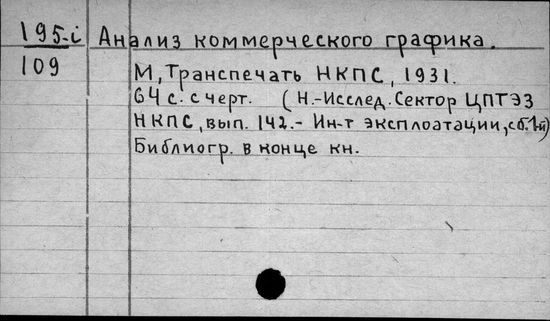 195-i Анализ коммерческого графика.
109
М, Транспечать НКПС, 1931.
64 с. с черт. (Н.-Исслед. Сектор ЦПТЭЗ
НКПС, вып. 142.- Ин-т эксплоатации, сб. 1-й)
Библиогр. в конце кн.